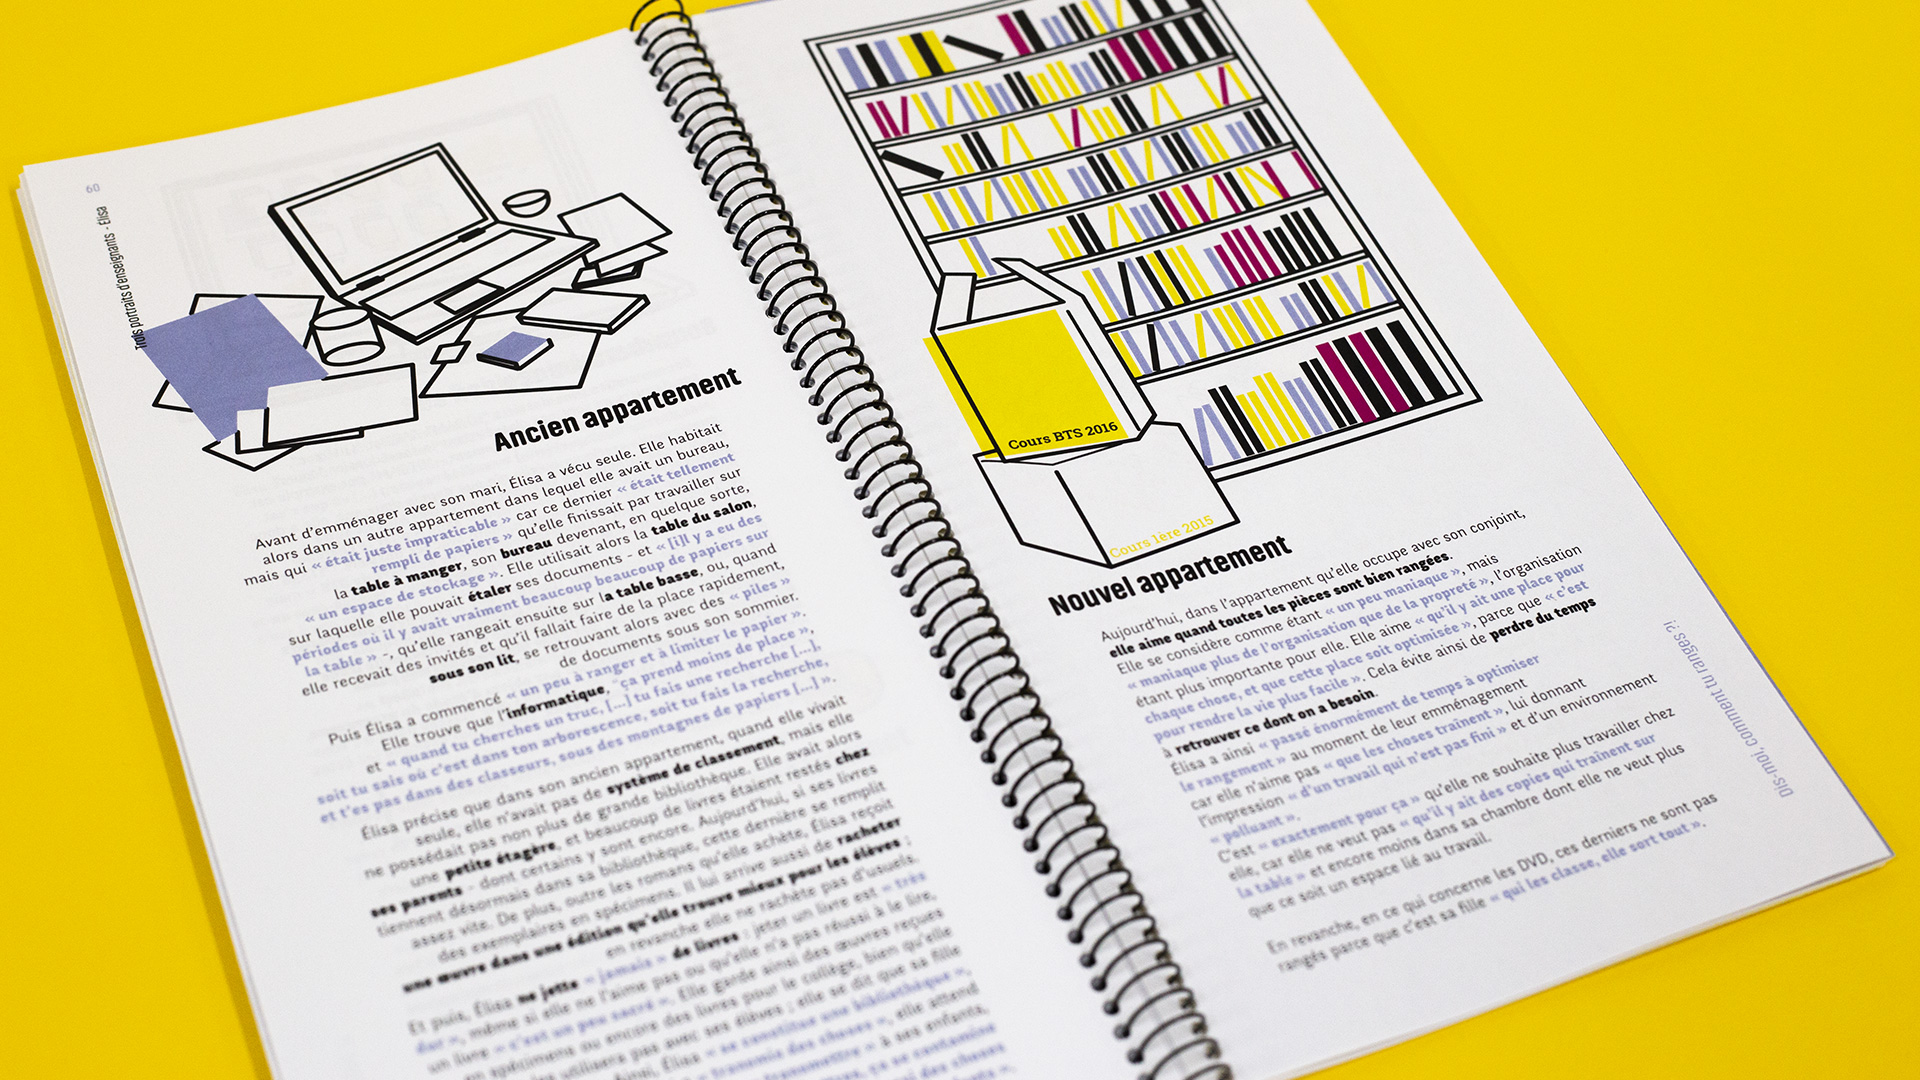 60
Trois portraits d'enseignants - Élisa
Ancien appartement
Avant d'emménager avec son mari, Élisa a vécu seule. Elle habitait
alors dans un autre appartement dans lequel elle avait un bureau,
mais qui « était juste impraticable » car ce dernier « était tellement
rempli de papiers » qu'elle finissait par travailler sur
la table à manger, son bureau devenant, en quelque sorte,
« un espace de stockage ». Elle utilisait alors la table du salon,
sur laquelle elle pouvait étaler ses documents - et « [i]l y a eu des
périodes où il y avait vraiment beaucoup beaucoup de papiers sur
la table » -, qu'elle rangeait ensuite sur la table basse, ou, quand
elle recevait des invités et qu'il fallait faire de la place rapidement,
sous son lit, se retrouvant alors avec des « piles »
de documents sous son sommier.
Puis Élisa a commencé « un peu à ranger et à limiter le papier ».
Elle trouve que l'informatique, "ça prend moins de place »,
et « quand tu cherches un truc, [...] tu fais une recherche [...],
soit tu sais où c'est dans ton arborescence, soit tu fais la recherche,
et t'es pas dans des classeurs, sous des montagnes de papiers [...] ».
Élisa précise que dans son ancien appartement, quand elle vivait
seule, elle n'avait pas de système de classement, mais elle
ne possédait pas non plus de grande bibliothèque. Elle avait alors
une petite étagère, et beaucoup de livres étaient restés chez
ses parents - dont certains y sont encore. Aujourd'hui, si ses livres
tiennent désormais dans sa bibliothèque, cette dernière se remplit
assez vite. De plus, outre les romans qu'elle achète, Élisa reçoit
des exemplaires en spécimens. Il lui arrive aussi de racheter
une œuvre dans une édition qu'elle trouve mieux pour les élèves ;
en revanche elle ne rachète pas d'usuels.
Et puis, Élisa ne jette « jamais » de livres : jeter un livre est « très
dur », même si elle ne l'aime pas ou qu'elle n'a pas réussi à le lire,
un livre « c'est un peu sacré ». Elle garde ainsi des œuvres reçues
en spécimens ou encore des livres pour le collège, bien qu'elle
utilisera pas avec ses élèves ; elle se dit que sa fille
Ainsi, Élisa « se constitue une bibliothèque »,
transmis des choses », elle attend
transmettre » à ses enfants,
Cours BTS 2016
Cours 1ère 2015
Nouvel appartement
Aujourd'hui, dans l'appartement qu'elle occupe avec son conjoint,
elle aime quand toutes les pièces sont bien rangées.
Elle se considère comme étant « un peu maniaque », mais
« maniaque plus de l'organisation que de la propreté », l'organisation
étant plus importante pour elle. Elle aime « qu'il y ait une place pour
chaque chose, et que cette place soit optimisée », parce que « c'est
pour rendre la vie plus facile ». Cela évite ainsi de perdre du temps
à retrouver ce dont on a besoin.
Élisa a ainsi « passé énormément de temps à optimiser
le rangement » au moment de leur emménagement
car elle n'aime pas « que les choses traînent », lui donnant
l'impression « d'un travail qui n'est pas fini » et d'un environnement
« polluant ».
C'est « exactement pour ça » qu'elle ne souhaite plus travailler chez
elle, car elle ne veut pas « qu'il y ait des copies qui traînent sur
la table » et encore moins dans sa chambre dont elle ne veut plus
que ce soit un espace lié au travail.
En revanche, en ce qui concerne les DVD, ces derniers ne sont pas
rangés parce que c'est sa fille « qui les classe, elle sort tout ».
Dis-moi, comment tu ranges ?!